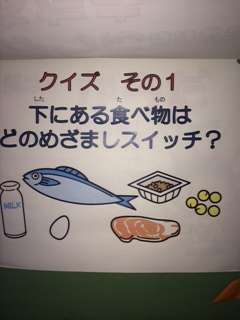 クイズ その1
下にある食べ物は
どのめざましスイッチ?
MILK